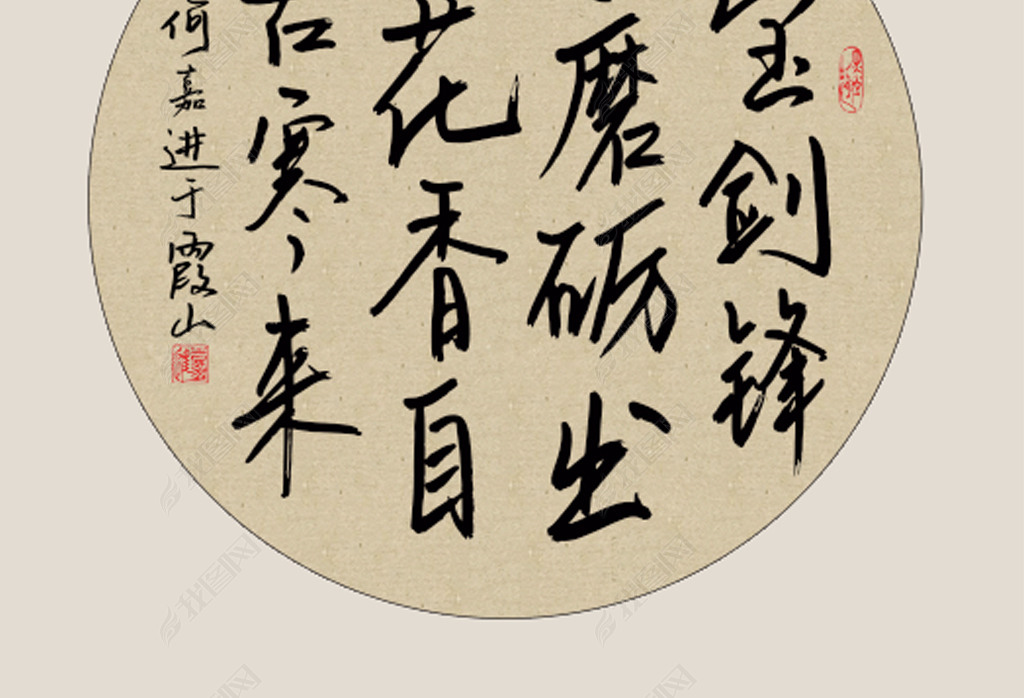 宝剑锋
磨砺出
花香自
苦寒来
何嘉进于霞山